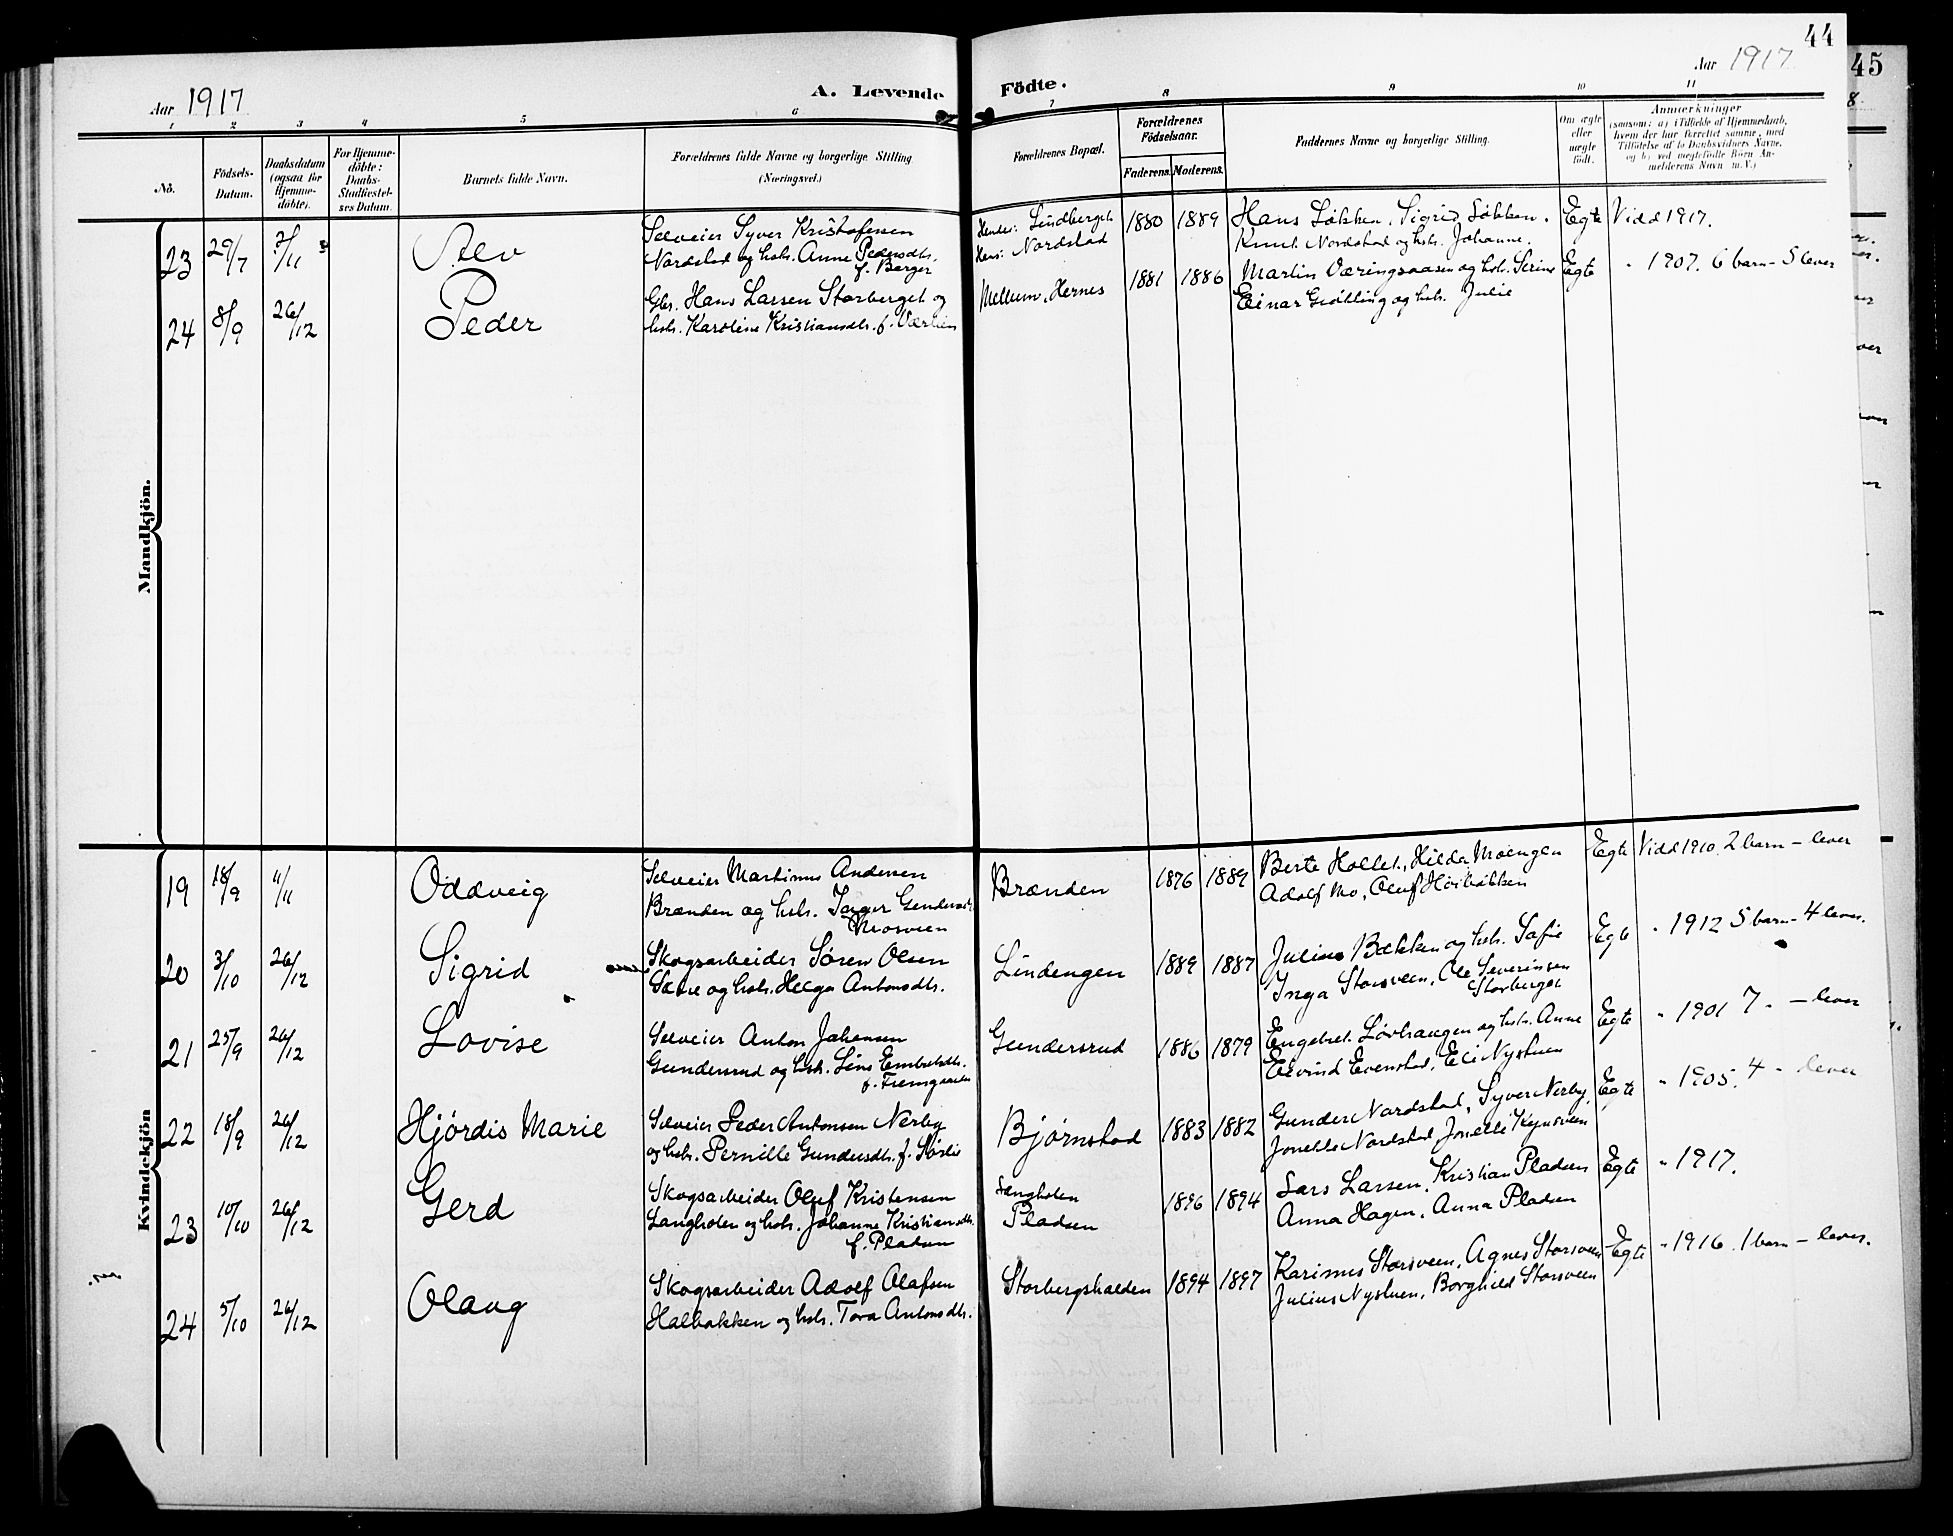 44
45
Aar 1917
A. Levende Födte.
Aar 1917
1 2 3 4 5 6 7 8 9 10 11
No.
Födsels-Datum.
Daabsdatum (ogsaa for Hjemme-döbte).
For Hjemme-döbte: Daabs-Stadfæstel-ses Datum.
Barnets fulde Navn.
Forældrenes fulde Navne og borgerlige Stilling (Næringsvei.)
Forældrenes Bopæl.
Forældrenes Födselsaar.
Faderens. Moderens.
Faddernes Navne og borgerlige Stilling.
Om ægte eller uægte födt.
Anmærkninger (saasom: a) i Tilfælde af Hjemmedaab, hvem der har forrettet samme, med Tilföielse af to Daabsvidners Navne, og b) ved uegtefödte Börn Anmelderens Navn m. V.)
Mandkjön.
23 29/7 Alv
Selveier Syver Kristofersen
Nordstad og hstr. Anne Pedersdtr.
f. Berger
Hendes: Lindberget
Hans: Nordstad
1880 1889
Hans Løkken, Sigrid Løkken.
Knut Nordstad og hstr. Johanne.
Egte Vidd 1917.
24 8/9 26/12 Peder
Gbr. Hans Larsen Storberget og
hstr. Karoline Kristiansdtr. f.
Mellum, Hernes
1881 1886
Martin Væringsaasen og hstr. Serine
Einar Grøtting og hstr. Julie
Egte " 1907. 6 barn - 5 lever
Kvindekjön
19 18/9 4/11 Oddveig
Selveier Martinus Andersen
Brænden og hstr. Inger
Mosveen
Brænden
1876 1889
Berte Hollet, Hilda Moengen
Adolf Mo, Oluf Høibakken
Egte Vidd 1910. 2 barn - lever
20 3/10 26/12 Sigrid
Skogsarbeider Søren Olsen
og hstr. Helga Antonsdtr.
Lindengen
1889 1887
Julius Bækken og hstr. Sofie
Inga Storsveen, Ole Severinsen
Storberget
Egte " 1912 5 barn - 4 lever.
21 25/9 26/12 Lovise
Selveier Anton Johansen
Gundersrud og hstr. Line Embretsdtr.
f. Fremgaarden
Gundersrud
1886 1879
Engebret Løvhaugen og hstr. Anne
Eivind Evenstad, Eli Nystuen
Egte " 1901 7 - lever
22 18/9 26/12 Hjørdis Marie
Selveier Peder Antonsen Nerby
og hstr. Pernille Gundersdtr. f. Sørlie
Bjørnstad
1883 1882
Gunder Nordstad, Syver Nerby,
Jonette Nordstad, Jonette Kynsveen
Egte " 1905. 4 - lever
23 10/10 26/12 Gerd
Skogsarbeider Oluf Kristensen
Langholen og hstr. Johanne Kristiansdtr.
f. Pladsen
Langholen
Pladsen
1896 1894
Lars Larsen, Kristian Pladsen
Anna Hagen, Anna Pladsen
Egte " 1917.
24 5/10 26/12 Olaug
Skogsarbeider Adolf Olafsen
Halbakken og hstr. Tora Antonsdtr.
Storbergshalden
1894 1897
Karinus Storsveen, Agnes Storsveen
Julius Nystuen, Borghild Storsveen
Egte " 1916. 1 barn - lever.